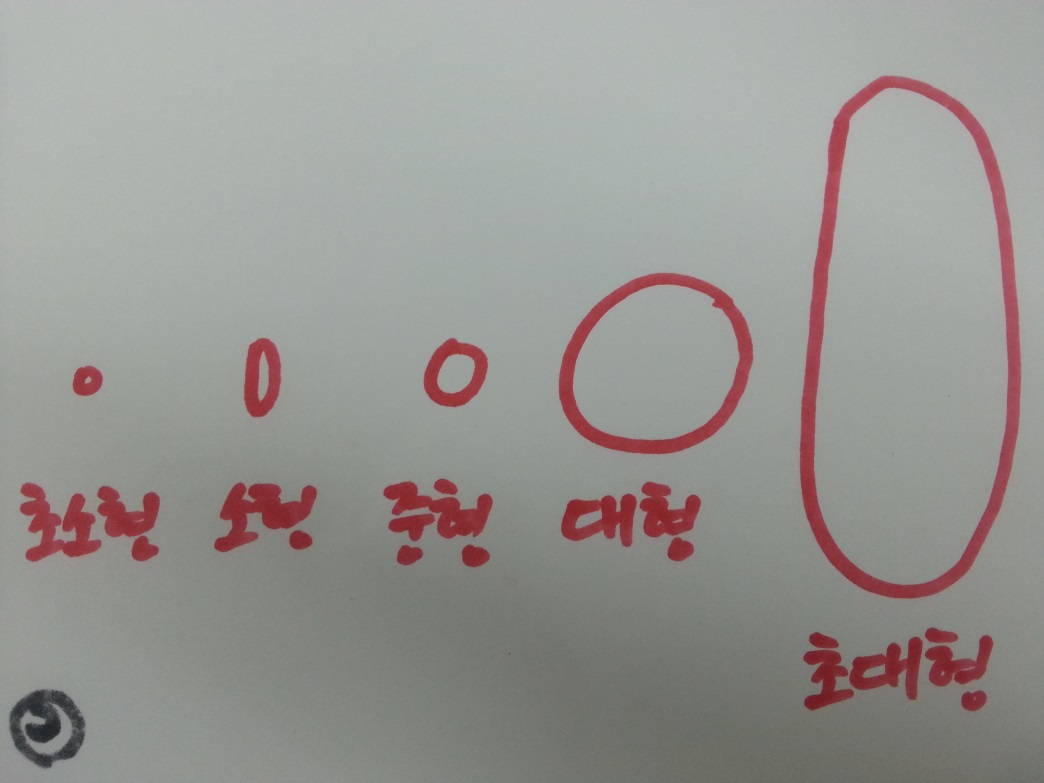 초소형 소형 중형 대형
초대형